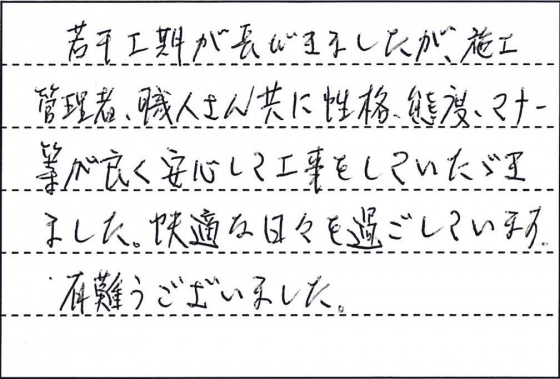 若干工期が長びきましたが、施工
管理者、職人さん共に性格、態度、マナー
等が良く安心して工事をしていただき
ました。快適な日々を過ごしています。
有難うございました。